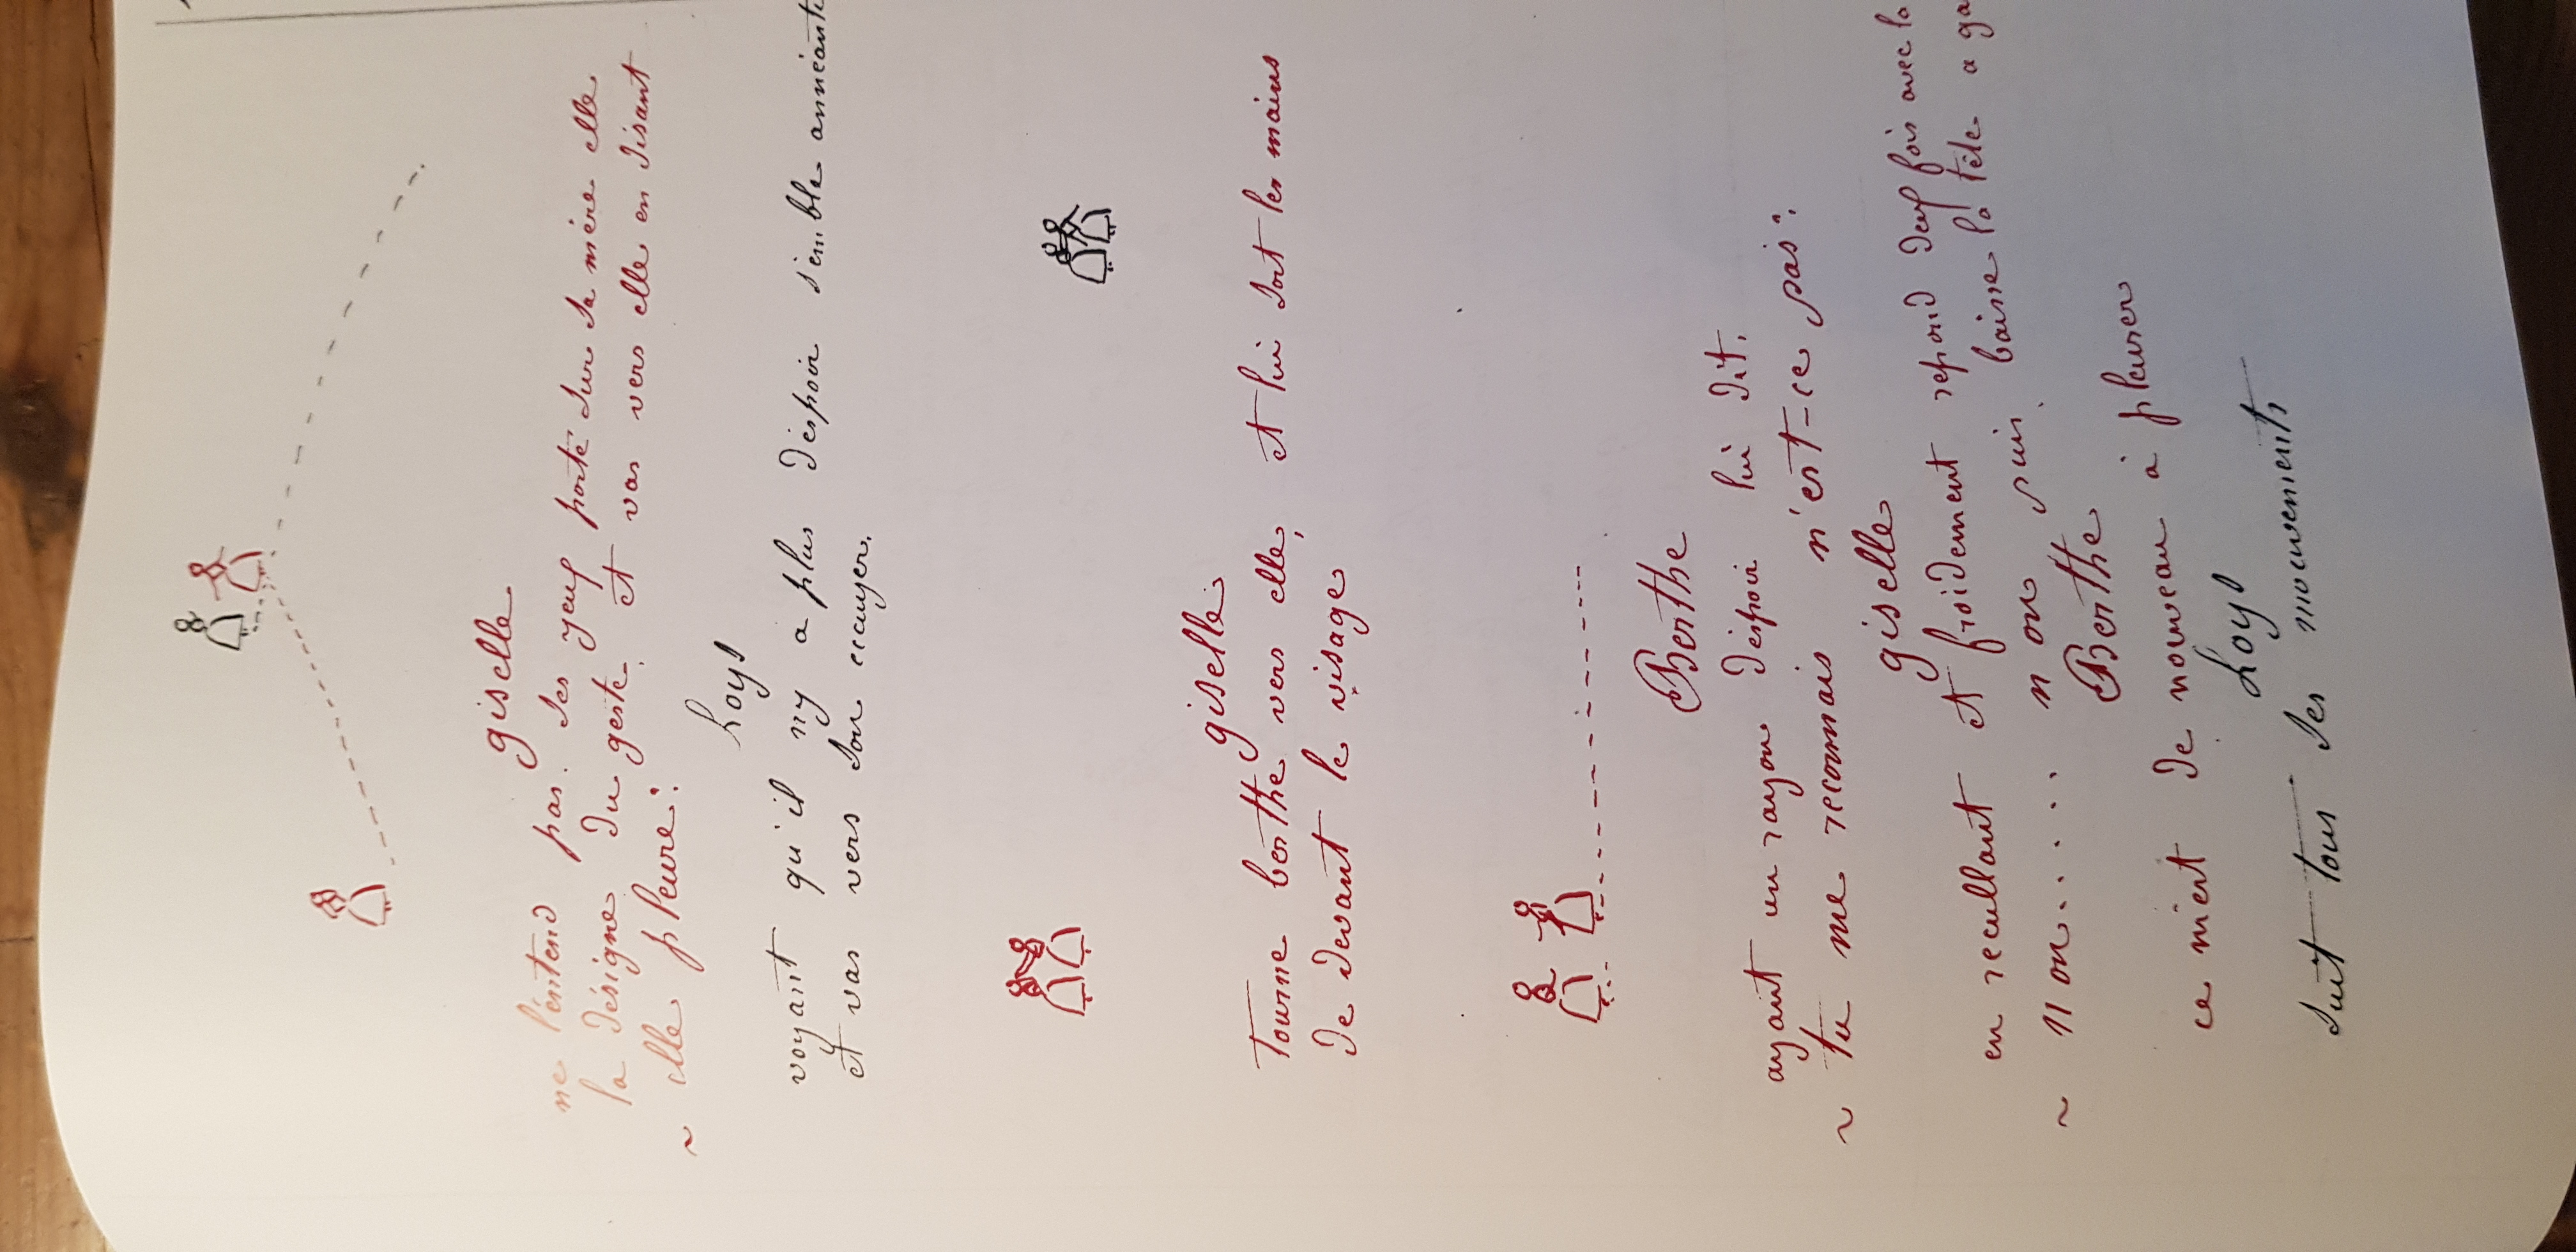 giselle
ne l'éntend pas. ses yeux porté sur sa mère elle
la désigne du geste, et vas vers elle en disant
~ elle pleure:
Loys
voyant qu'il ny a plus déspoir semble annéanti
et vas vers son ecauyer.
giselle
tourne berthe vers elle, et lui sort les mains
de devant le visage
Berthe
ayant un rayon déspoir lui dit.
~ tu me reconnais n'est-ce pas:
giselle
en recullant et froidement repond deux fois avec la
~ non..... non puis baisse la tête a ga
Berthe
ce mèt de nouveau à pleurer
Loys
suit tous ses mouvements